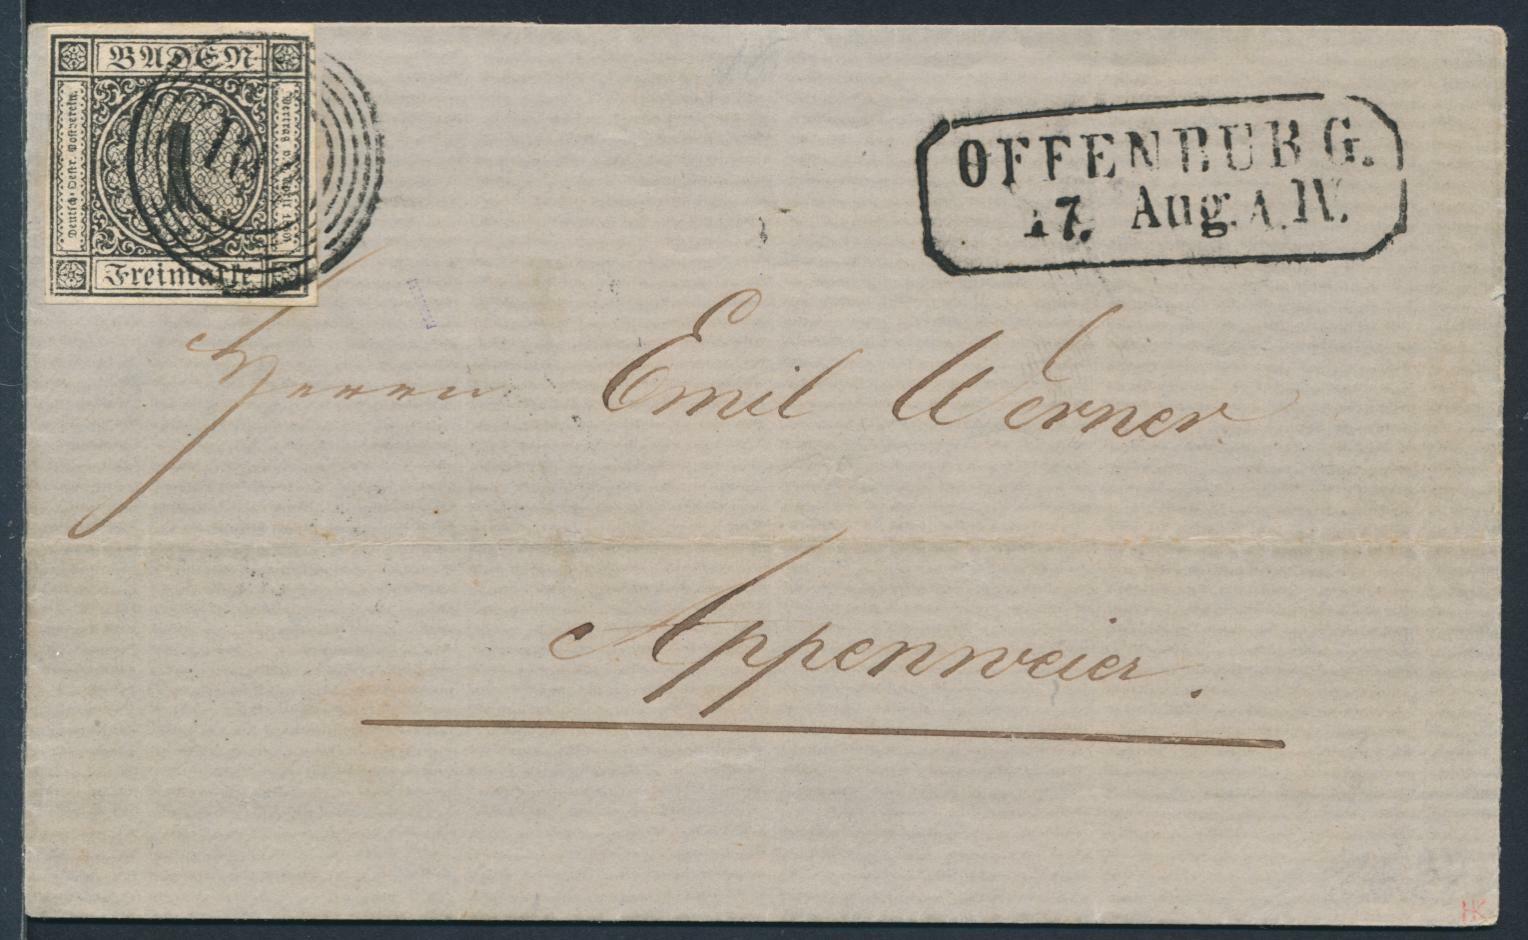 BADEN
Deutsch-Oestr. Postverein.
Vertrag v. 6. April 1850
1
Freimarke
OFFENBURG.
17. Aug. A. IV.
Herrn Emil Werner
Appenweier.
HK